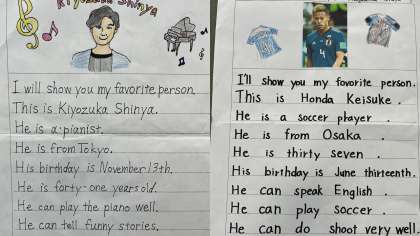 Kiyozuka Shinya
I will show you my favorite person.
This is Kiyozuka Shinya.
He is a pianist.
He is from Tokyo.
His birthday is November 13th.
He is forty-one years old.
He can play the piano well.
He can tell funny stories.
I'll show you my favorite person.
This is Honda Keisuke.
He is a soccer player.
He is from Osaka
He is thirty seven.
His birthday is June thirteenth.
He can speak English.
He can play soccer.
He can do shoot very well